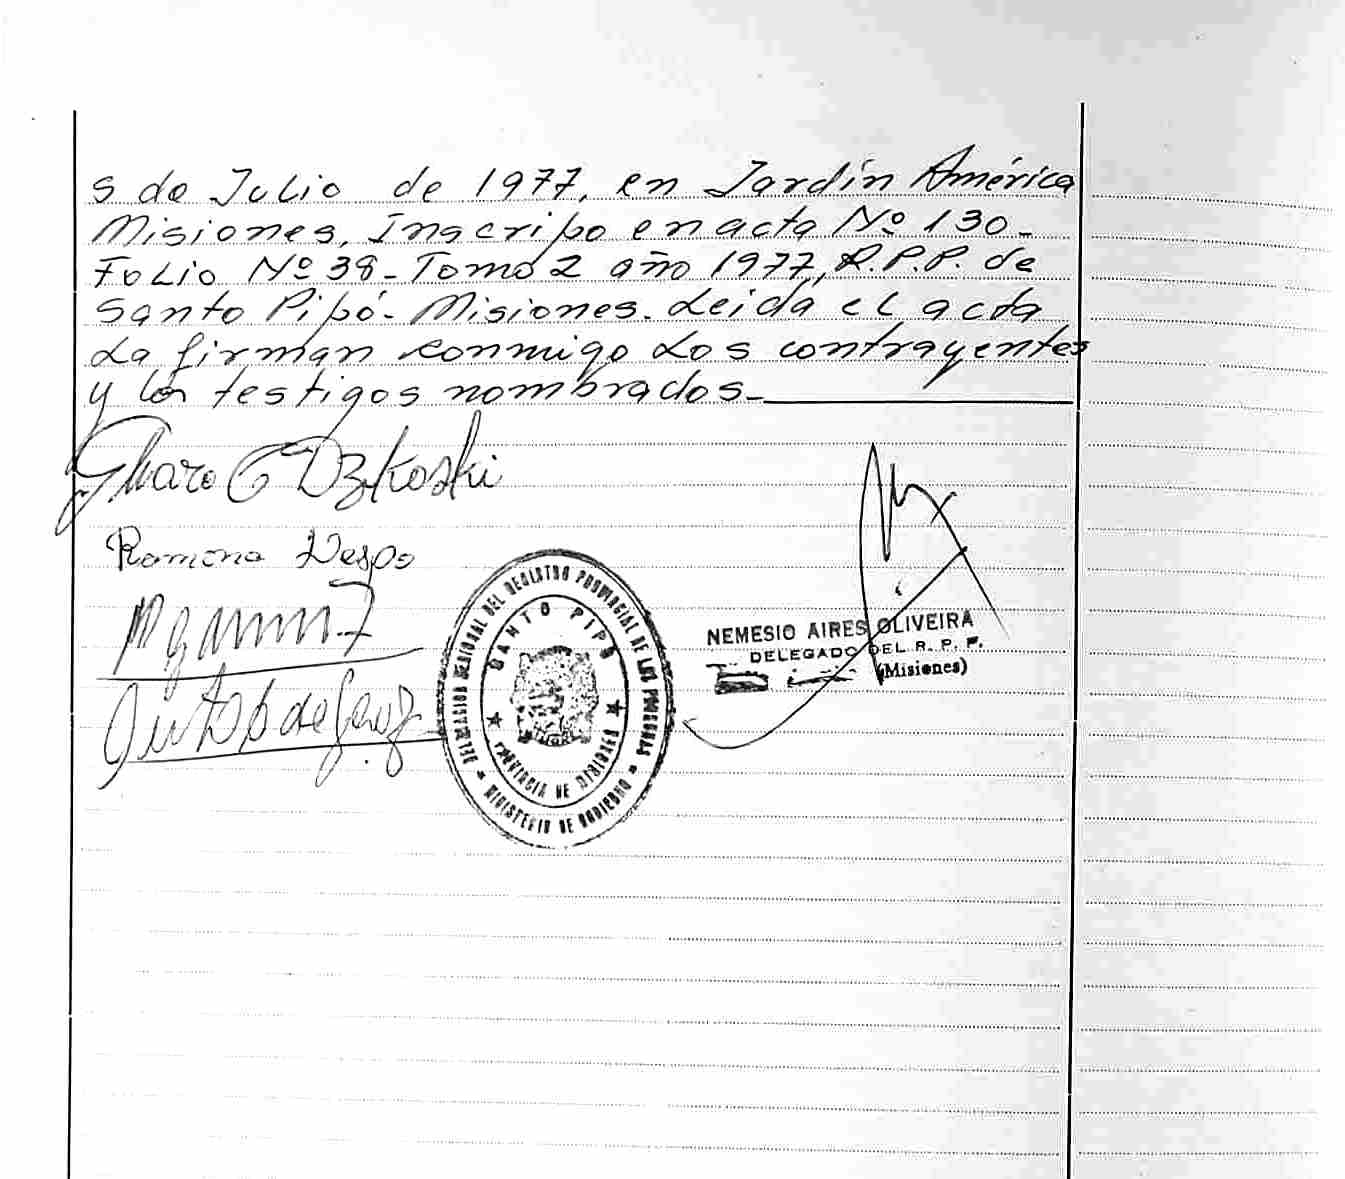 5 de Julio de 1977, en Jardín América
Misiones, Inscripo en acta Nº 130-
Folio Nº 38- Tomo 2 año 1977, R.P.P. de
Santo Pipó- Misiones. Leida el acta
La firman conmigo Los contrayentes
y los testigos nombrados-
Dzkoski
Ramona
DELEGACION REGIONAL DEL REGISTRO PROVINCIAL DE LAS PERSONAS
SANTO PIPO
PROVINCIA DE MISIONES
MINISTERIO DE GOBIERNO
NEMESIO AIRES OLIVEIRA
DELEGADO DEL R. P. P.
(Misiones)